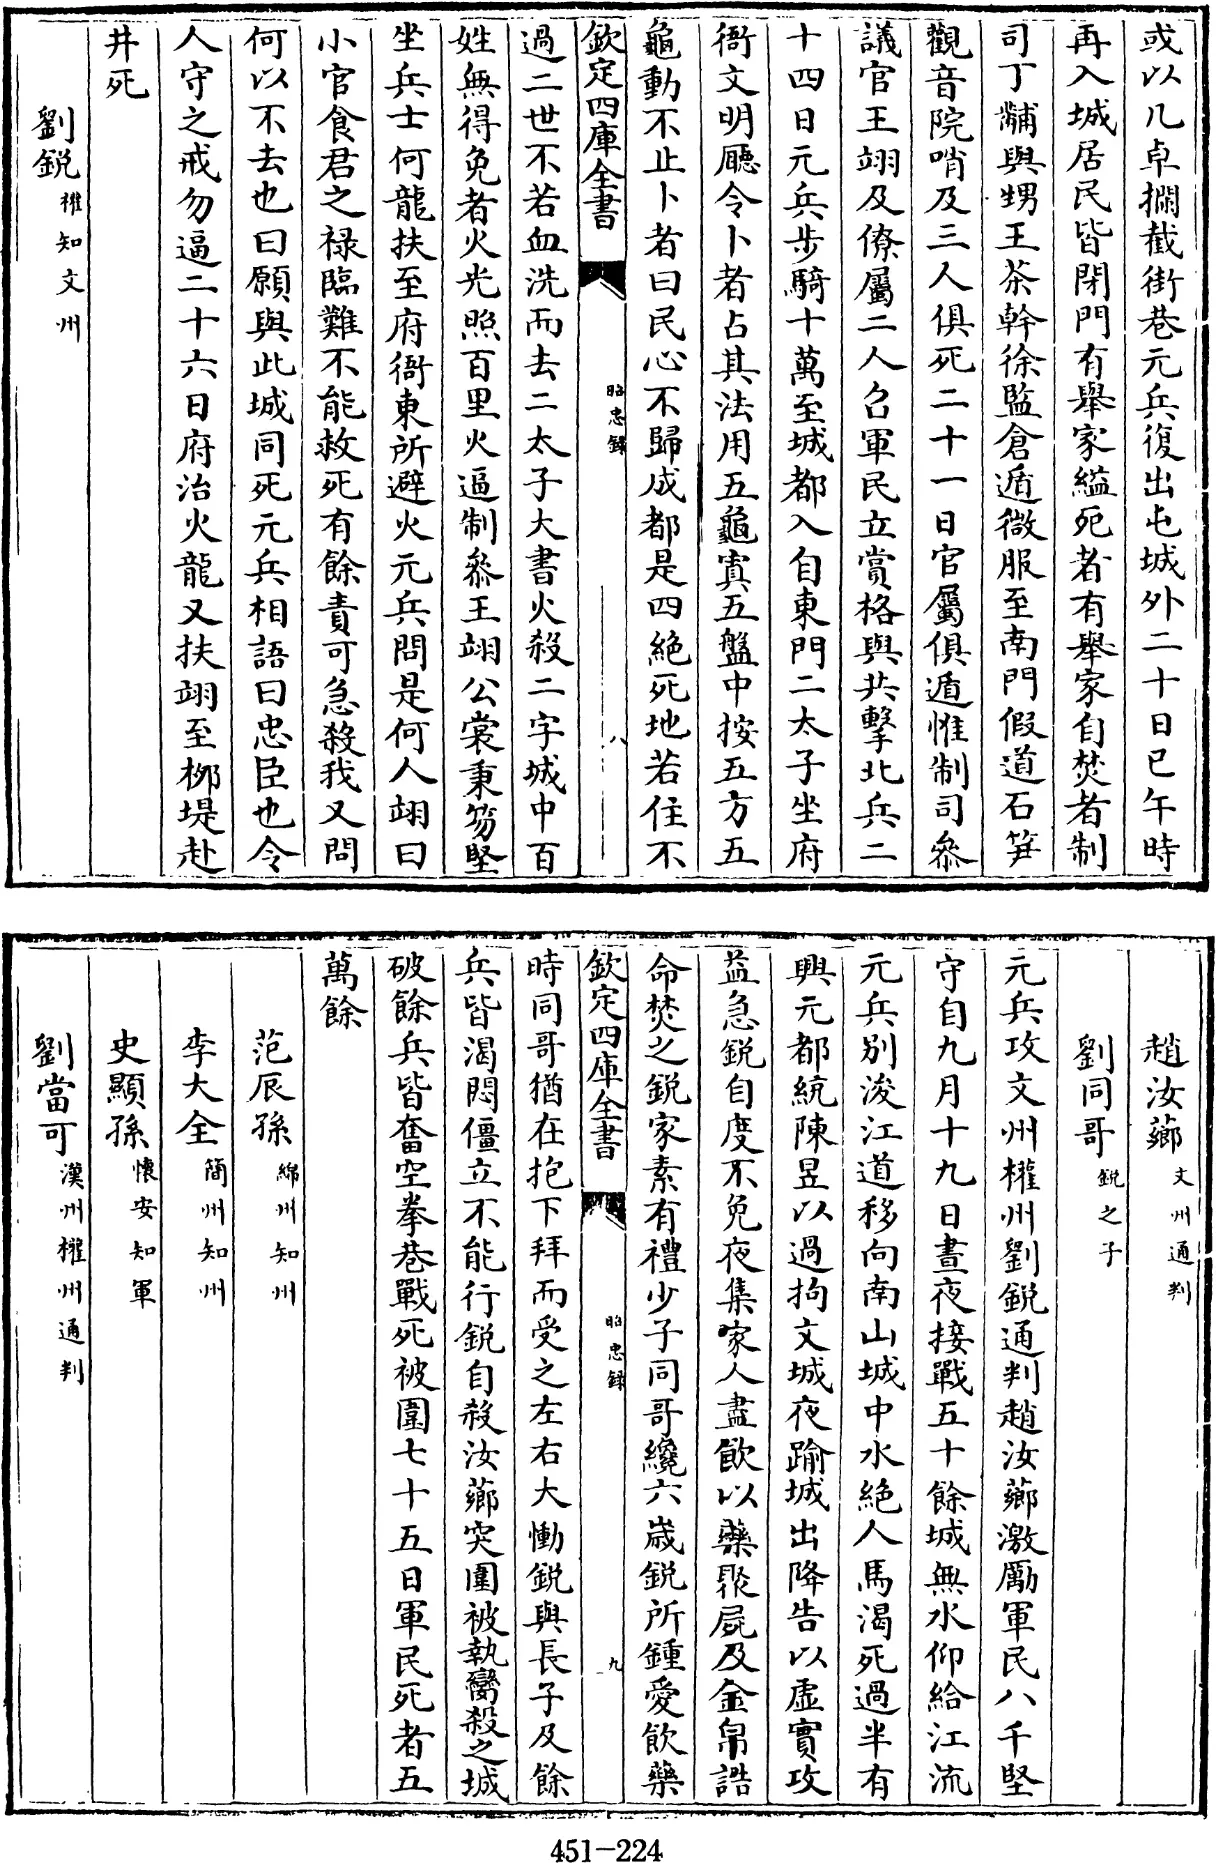 或以几卓攔截街巷元兵復出屯城外二十日巳午時
再入城居民皆閉門有舉家縊死者有舉家自焚者制
司丁黼與甥王茶幹徐監倉遁微服至南門假道石笋
觀音院哨及三人俱死二十一日官屬俱遁惟制司叅
議官王翊及僚屬二人召軍民立賞格與共擊北兵二
十四日元兵步騎十萬至城都入自東門二太子坐府
衙文明廳令卜者占其法用五龜寘五盤中按五方五
龜動不止卜者曰民心不歸成都是四絶死地若住不
欽定四庫全書
昭忠録
八
過二世不若血洗而去二太子大書火殺二字城中百
姓無得免者火光照百里火逼制叅王翊公裳秉笏堅
坐兵士何龍扶至府衙東所避火元兵問是何人翊曰
小官食君之禄臨難不能救死有餘責可急殺我又問
何以不去也曰願與此城同死元兵相語曰忠臣也令
人守之戒勿逼二十六日府治火龍又扶翊至栁堤赴
井死
劉鋭 權知文州
趙汝薌 文州通判
劉同哥 鋭之子
元兵攻文州權州劉鋭通判趙汝薌激厲軍民八千堅
守自九月十九日晝夜接戰五十餘城無水仰給江流
元兵别浚江道移向南山城中水絶人馬渴死過半有
興元都統陳昱以過拘文城夜踰城出降告以虚實攻
益急鋭自度不免夜集家人盡飲以藥聚屍及金帛誥
命焚之鋭家素有禮少子同哥纔六歳鋭所鍾愛飲藥
欽定四庫全書
昭忠録
九
時同哥猶在抱下拜而受之左右大慟鋭與長子及餘
兵皆渴悶僵立不能行鋭自殺汝薌突圍被執臠殺之城
破餘兵皆奮空拳巷戰死被圍七十五日軍民死者五
萬餘
范辰孫 綿州知州
李大全 簡州知州
史顯孫 懷安知軍
劉當可 漢州權州通判
451-224